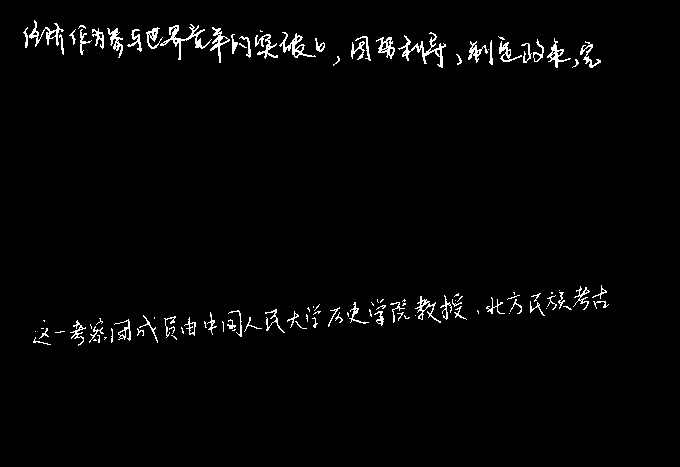 经济作为参与世界竞争的突破口，因势利导，制定政策，完
这一考察团成员由中国人民大学历史学院教授、北方民族考古